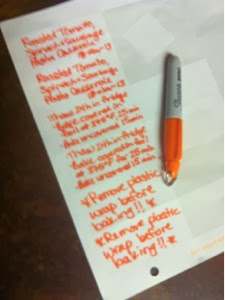 Roasted Tomato,
Spinach + Sausage
Pasta Casserole
Roasted Tomato,
Spinach + Sausage
Pasta Casserole
Thaw 24h in fridge
Bake covered in
foil at 375°F, 25 min
Bake uncovered 15 min
Thaw 24h in fridge
Bake covered in foil
at 375°F for 25 min
Bake uncovered 15 min
*Remove plastic
wrap before
baking!! *
*Remove plastic
wrap before
baking!! *
Sharpie